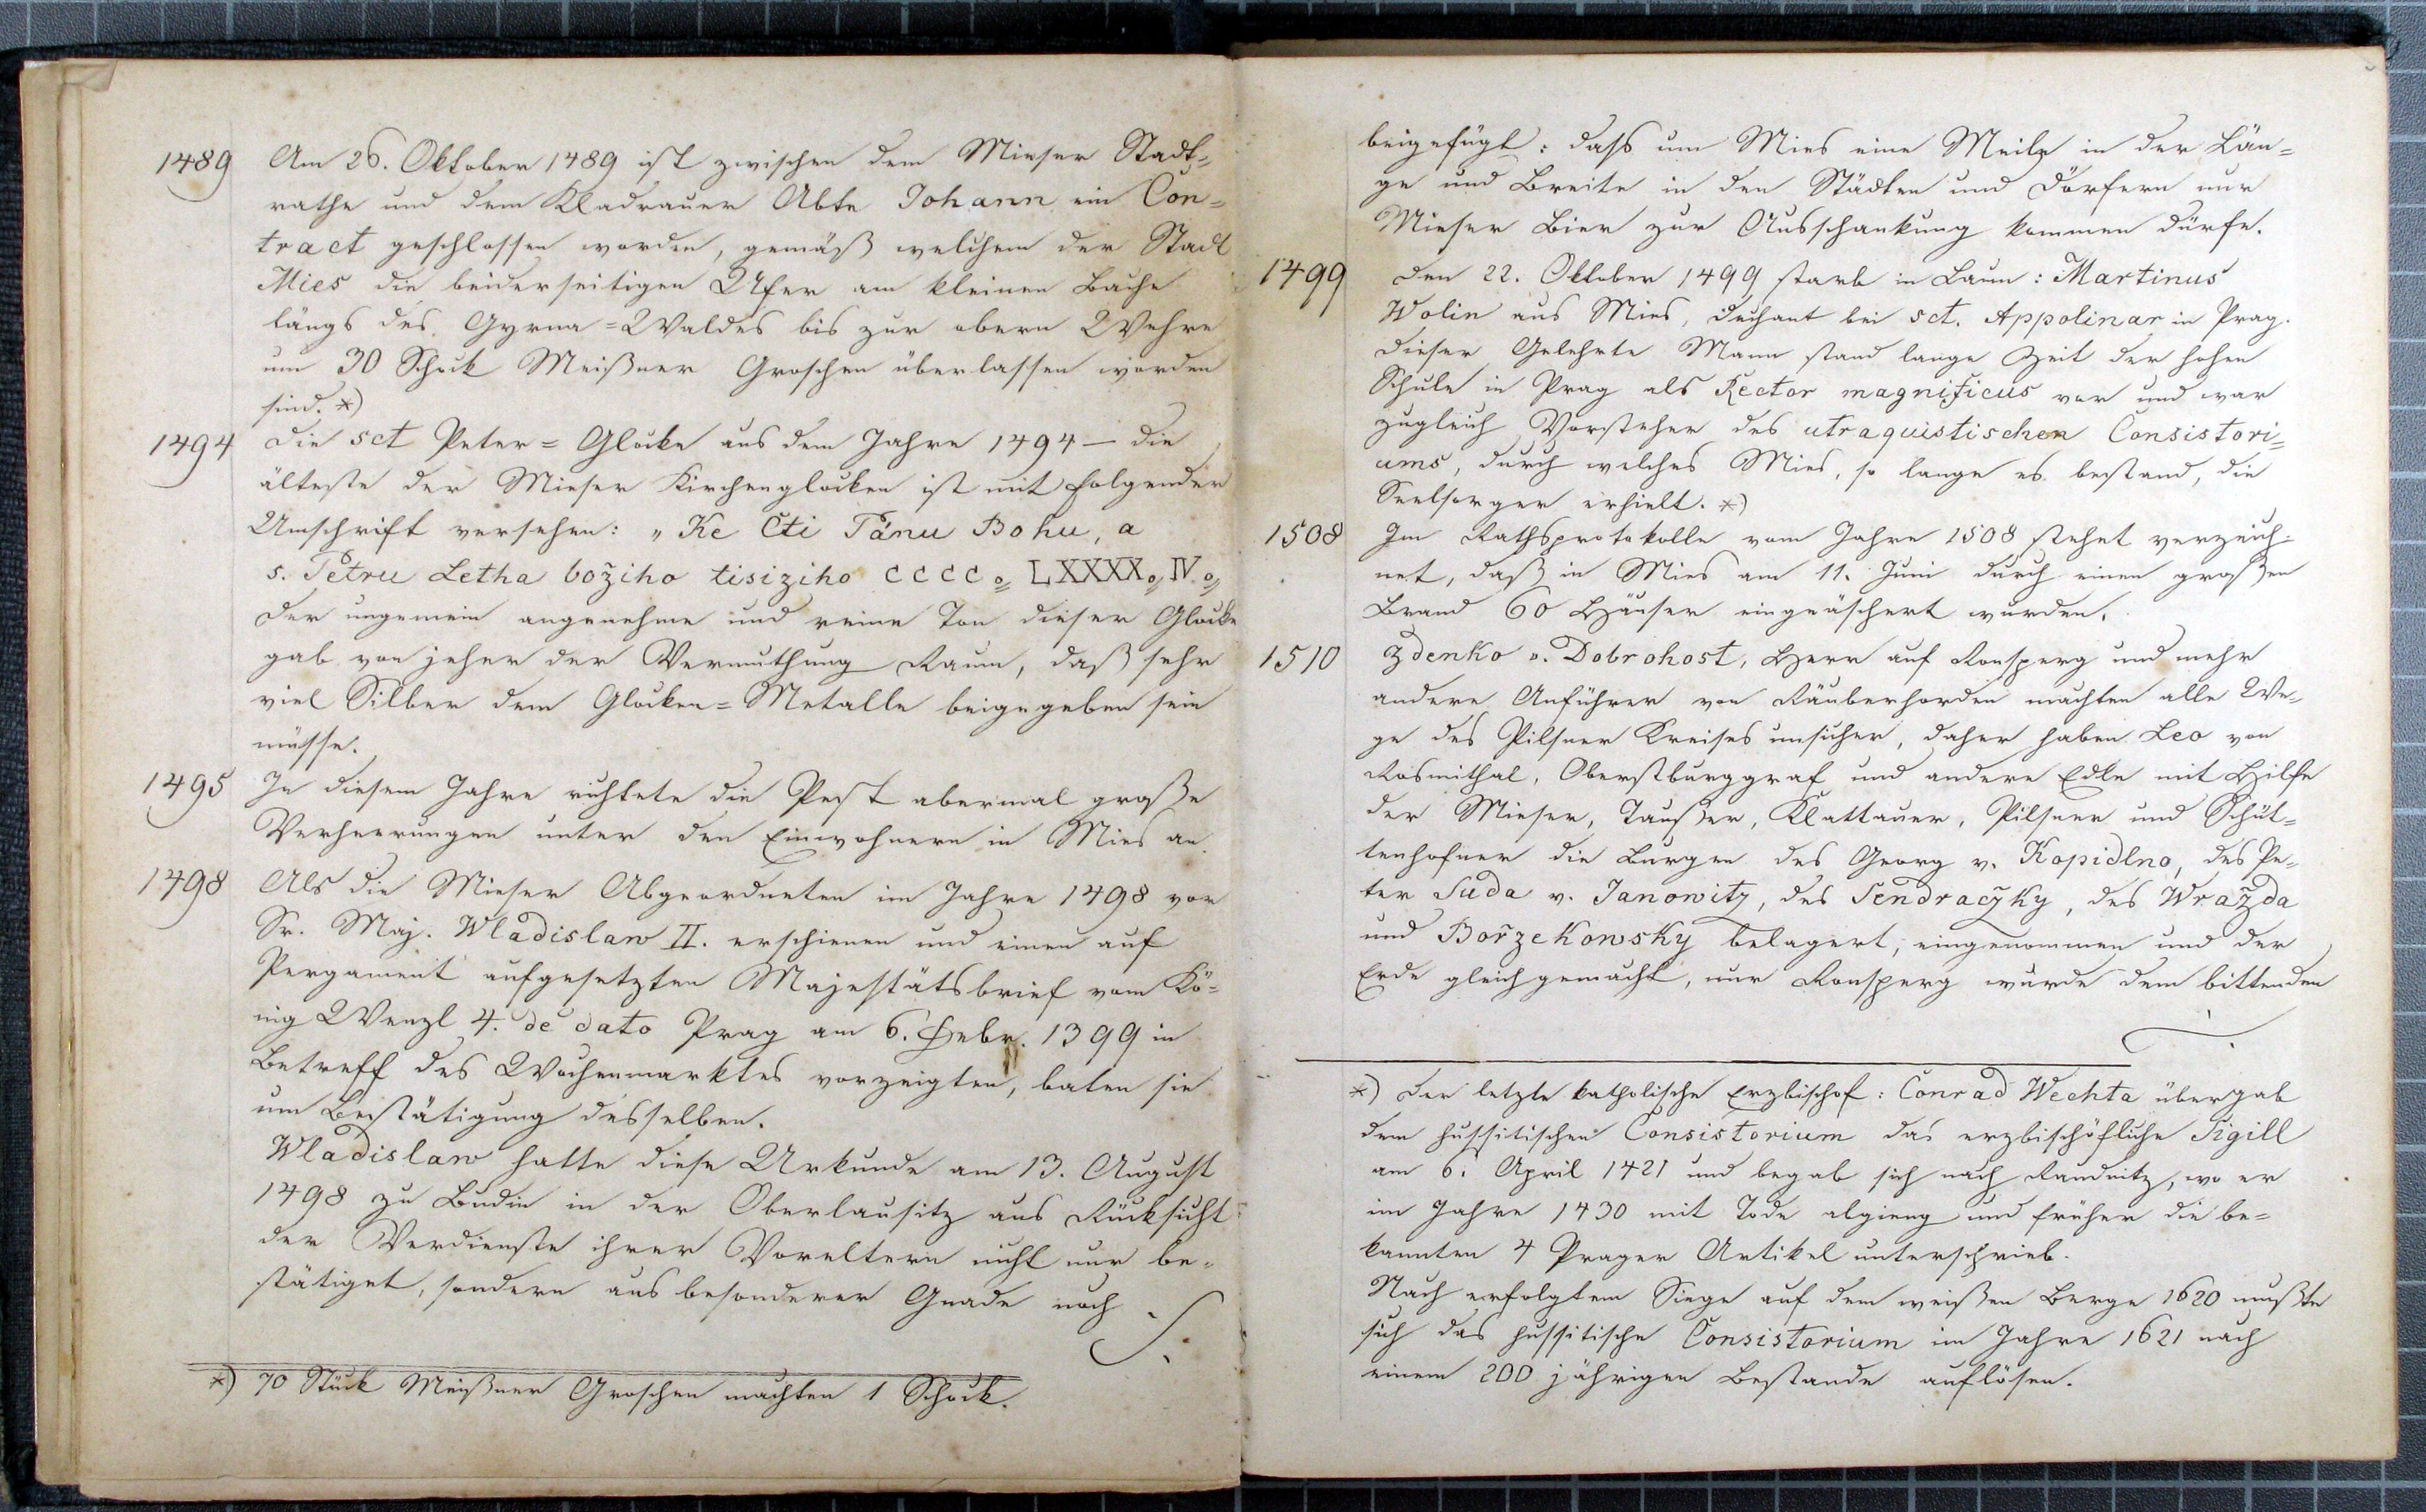 1489 Am 26. Oktober 1489 ist zwischen dem Mieser Stadt=
rathe und dem Kladrauer Abte Johann ein Con=
tract geschlossen worden, gemäß welchem der Stadt
Mies die beiderseitigen Ufer am kleinen Bache
längs des Gyrna=Waldes bis zur obern Wehre
um 30 Schock Meißner Groschen überlassen worden
sind. *)
1494 Die sct Peter=Glocke aus dem Jahre 1494 – die
älteste der Mieser Kirchenglocken ist mit folgender
Umschrift versehen: „Ke Cti Pánu Bohu, a
s. Petru Letha božiho tisiziho CCCC o LXXXX o IV o
Der ungemein angenehme und reine Ton dieser Glocke
gab von jeher der Vermuthung Raum, daß sehr
viel Silber dem Glocken=Metalle beigegeben sein
müsse.
1495 In diesem Jahre richtete die Pest abermal große
Verheerungen unter den Einwohnern in Mies an.
1498 Als die Mieser Abgeordneten im Jahre 1498 vor
Sr. Maj. Wladislaw II. erschienen und einen auf
Pergament aufgesetzten Majestätsbrief vom Kö=
nig Wenzl 4. de dato Prag am 6. Febr. 1399 in
Betreff des Wochenmarktes vorzeigten, baten sie
um Bestätigung desselben.
Wladislaw hatte diese Urkunde am 13. August
1498 zu Budin in der Oberlausitz aus Rücksicht
der Verdienste ihrer Voreltern nicht nur be=
stätiget, sondern aus besonderer Gnade noch
*) 70 Stück Meißner Groschen machten 1 Schock.
beigefügt: dass um Mies eine Meile in der Län=
ge und Breite in den Städten und Dörfern nur
Mieser Bier zur Ausschankung kommen dürfe.
1499 Den 22. Oktober 1499 starb in Laun: Martinus
Wolin aus Mies, Dechant bei sct. Appolinar in Prag.
Dieser Gelehrte Mann stand lange Zeit der hohen
Schule in Prag als Rector magnificus vor und war
zugleich Vorsteher des utraquistischen Consistori=
ums, durch welches Mies, so lange es bestand, die
Seelsorger erhielt. *)
1508 Im Rathsprotokolle vom Jahre 1508 stehet verzeich=
net, daß in Mies am 11. Juni durch einen großen
Brand 60 Häuser eingeäschert wurden.
1510 Zdenko v. Dobrohost, Herr auf Ronsperg und mehr
andere Anführer von Räuberhorden machten alle We=
ge des Pilsner Kreises unsicher, daher haben Leo von
Rosmithal, Oberstburggraf und andere Edle mit Hilfe
der Mieser, Taußer, Klattauer, Pilsner und Schüt=
tenhofner die Burgen des Georg v. Kopidlno, des Pe=
ter Suda v. Janowitz, des Sendraczky, des Wražda
und Bořzekowsky belagert, eingenommen und der
Erde gleich gemacht, nur Ronsperg wurde dem bittenden
*) Der letzte katholische Erzbischof: Conrad Wechta übergab
dem hussitischen Consistorium das erzbischöfliche Sigill
am 6. April 1421 und begab sich nach Raudnitz, wo er
im Jahre 1430 mit Tode abgieng und früher die be=
kannten 4 Prager Artikel unterschrieb.
Nach erfolgtem Siege auf dem weißen Berge 1620 mußte
sich das hussitische Consistorium im Jahre 1621 nach
einem 200 jährigen Bestande auflösen.